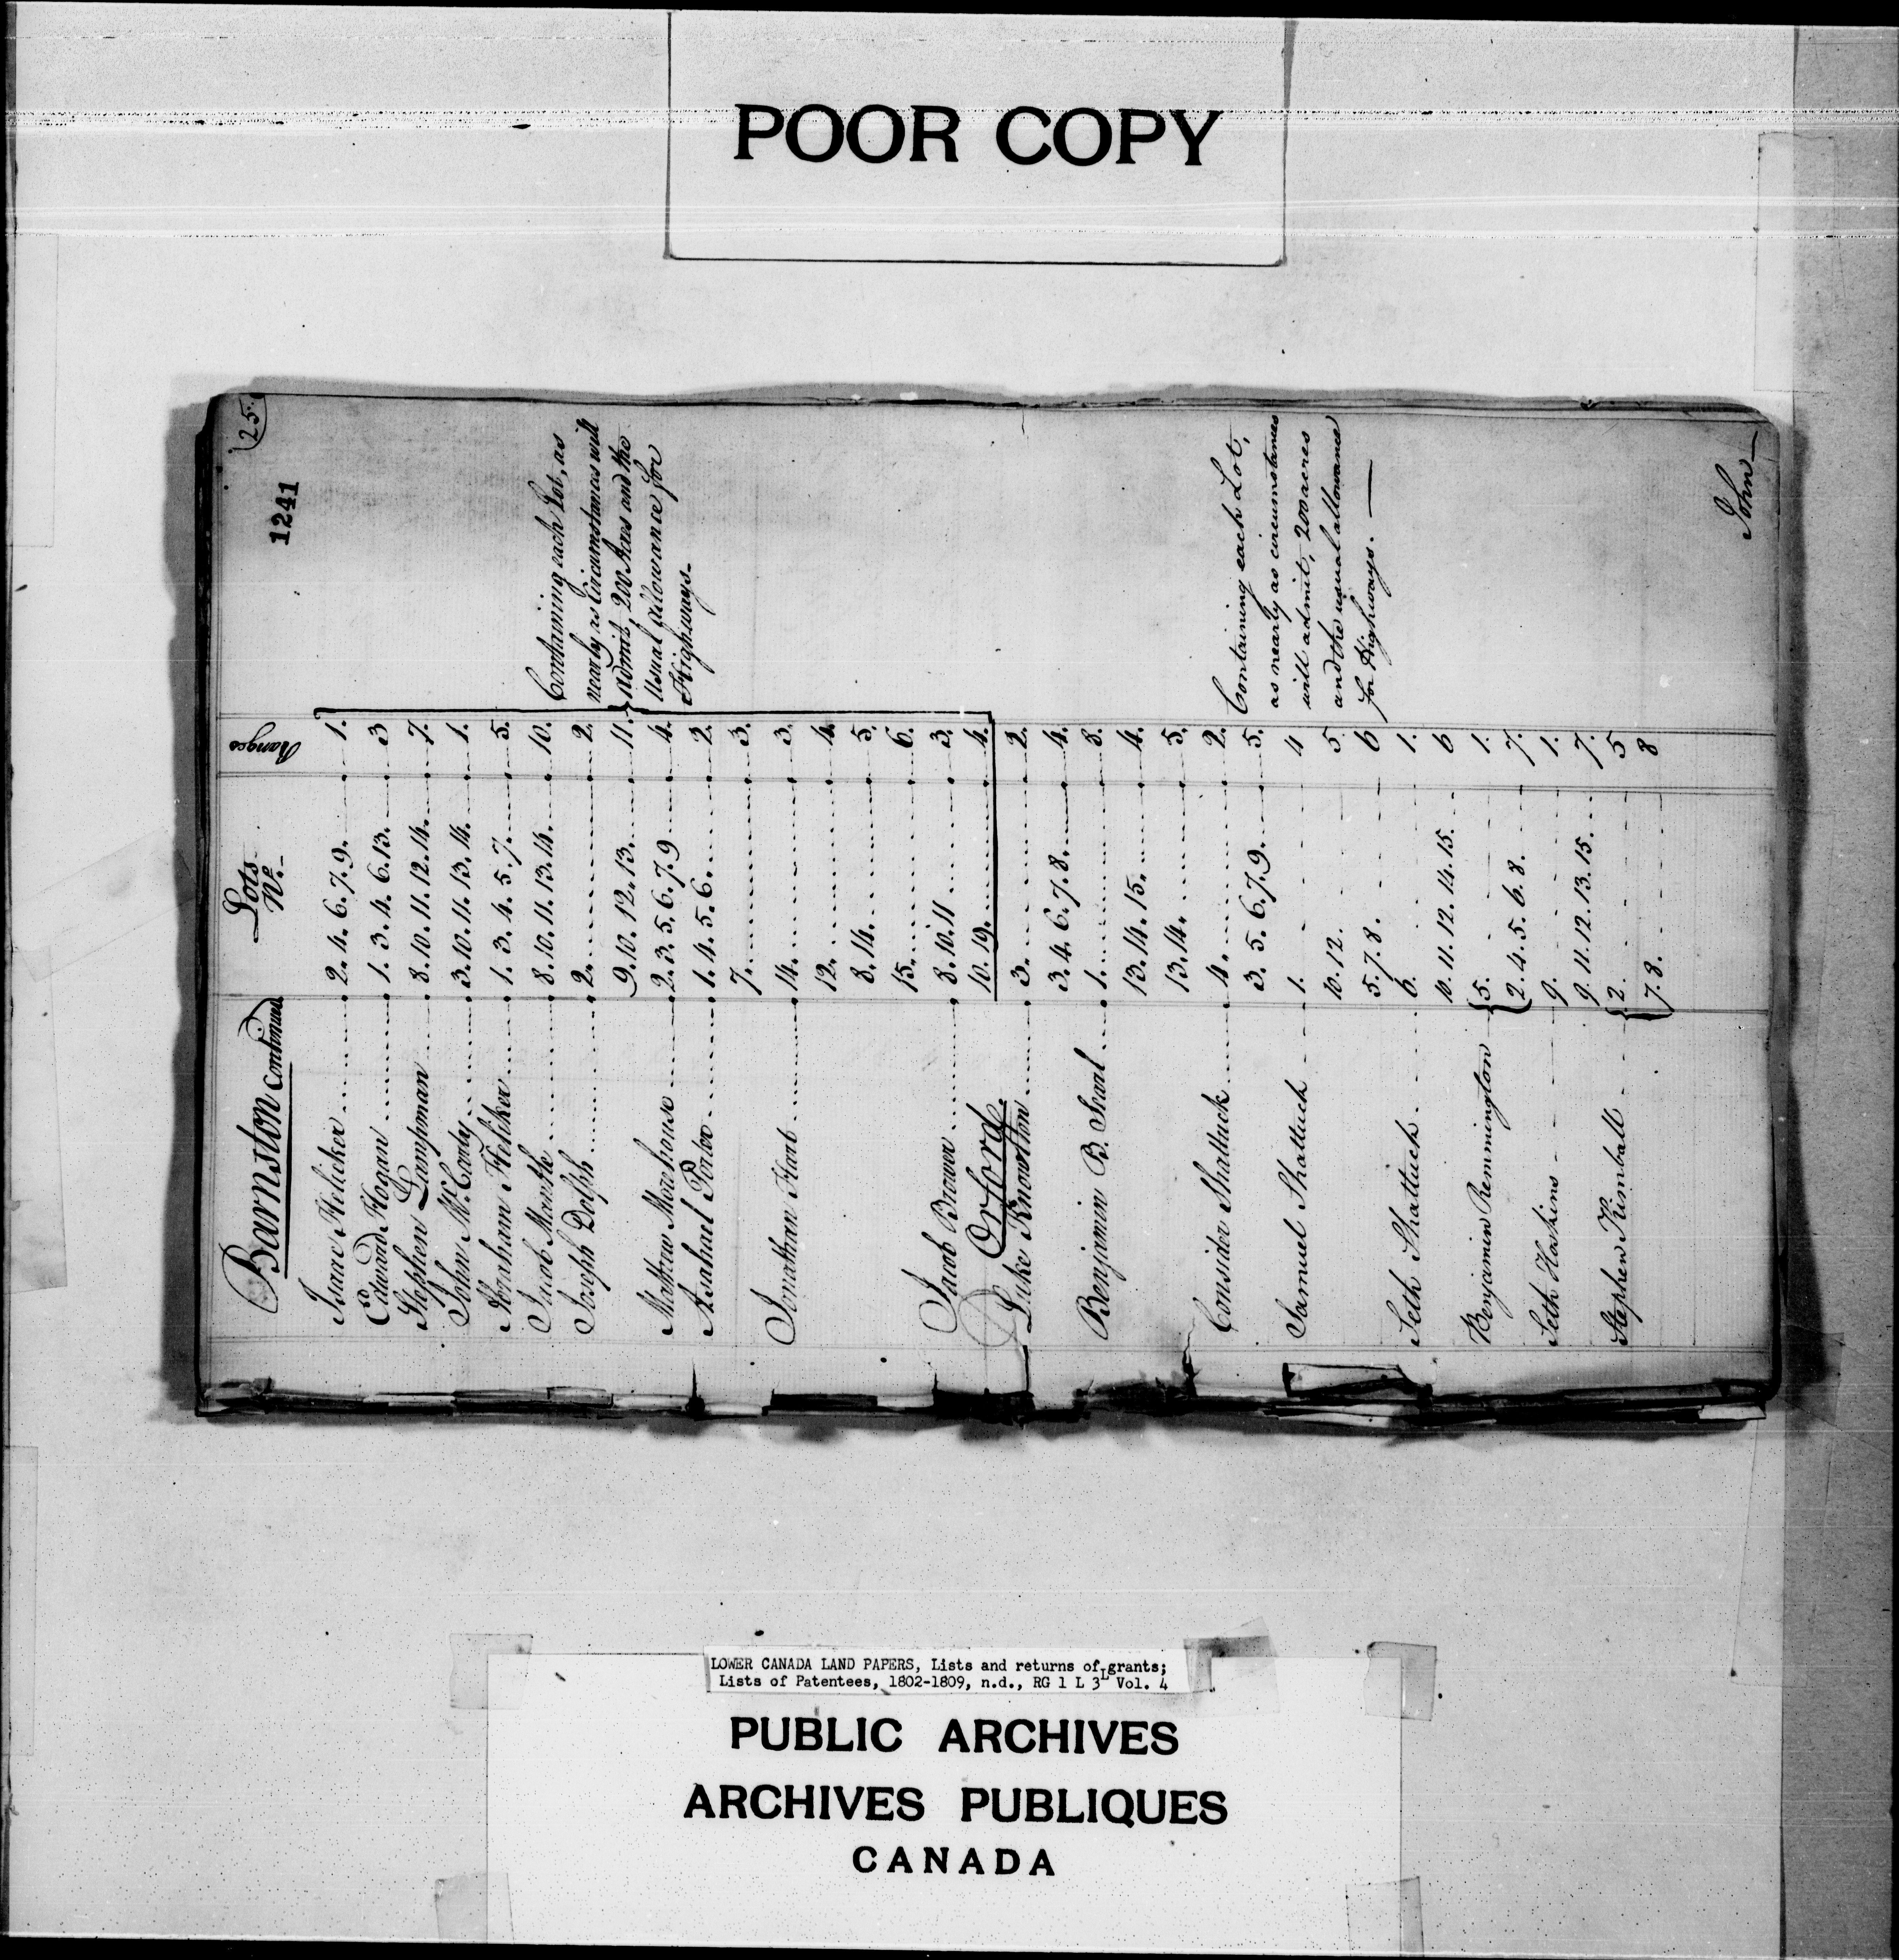 POOR COPY
25.
1241
Barnston Continued
Lots Nº.
Ranges
Isaac Heliker 2. 4. 6. 7. 9. 1.
Edward Hogan 1. 3. 4. 6. 13. 3
Stephen Lampman 8. 10. 11. 12. 14. 7.
John McCarty 3. 10. 11. 13. 14. 1.
Abraham Heliker 1. 3. 4. 5. 7. 5.
Jacob Marsh 8. 10. 11. 13. 14. 10.
Joseph Dolph 2. 2.
9. 10. 12. 13. 11.
Mathew Morehouse 2. 3. 5. 6. 7. 9 4.
Asahael Porter 1. 4. 5. 6. 2.
7. 3.
Jonathan Hart 14. 3.
12. 4.
8. 14. 5.
15. 6.
Jacob Brower 8. 10. 11 3.
10. 19. 4.
Containing each Lot, as
nearly as Circumstances will
admit, 200 Acres and the
Usual allowance for
Highways.
Orford.
Luke Knowlton 3. 2.
3. 4. 6. 7. 8. 4.
Benjamin B. Searl 1. 8.
13. 14. 15. 4.
13. 14. 5.
Consider Shattuck 4. 2.
3. 5. 6. 7. 9. 5.
Samuel Shattuck 1. 4
10. 12. 5.
5. 7. 8. 6
Seth Shattuck 6. 1.
10. 11. 12. 14. 15. 6
Benjamin Remmington 5. 1.
2. 4. 5. 6. 8. 7.
Seth Hoskins 9. 1.
9. 11. 12. 13. 15. 7.
Stephen Kimball 2. 5
7. 8. 8
Containing each Lot,
as nearly as circumstances
will admit, 200 acres
and the usual allowance
for Highways.
John
LOWER CANADA LAND PAPERS, Lists and returns of grants;
Lists of Patentees, 1802-1809, n.d., RG 1 L 3L Vol. 4
PUBLIC ARCHIVES
ARCHIVES PUBLIQUES
CANADA